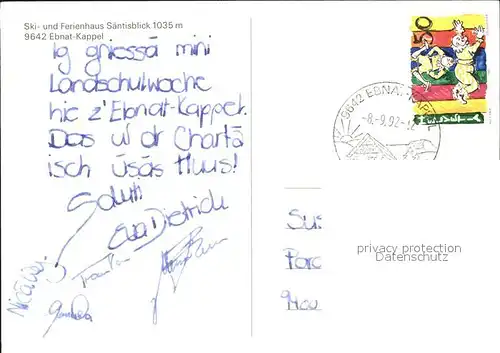 Ski- und Ferienhaus Säntisblick 1035 m
9642 Ebnat-Kappel
Ig griessä mini
Landschulwoche
hie z'Ebnat-Kappel.
Das uf dr Chartä
isch üsäs Huus!
Salut!
Eva Dietrich
9642 EBNAT-KAPPEL
-8.-9.92-12
50
Sus
Parc
privacy protection
Datenschutz